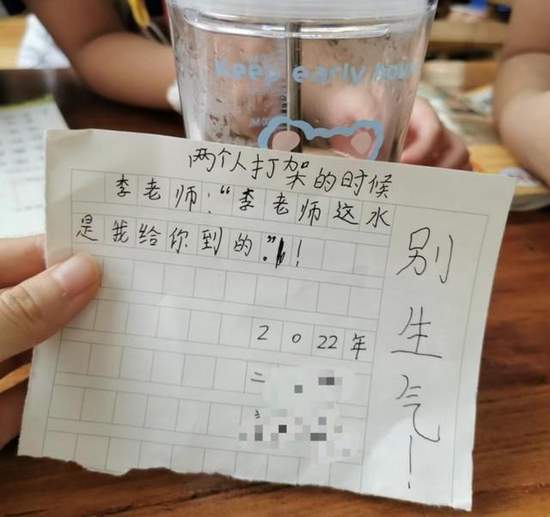 Keep early hou
两个人打架的时候
李老师:“李老师这水
是我给你到的.”!
2022年
二
别生气!